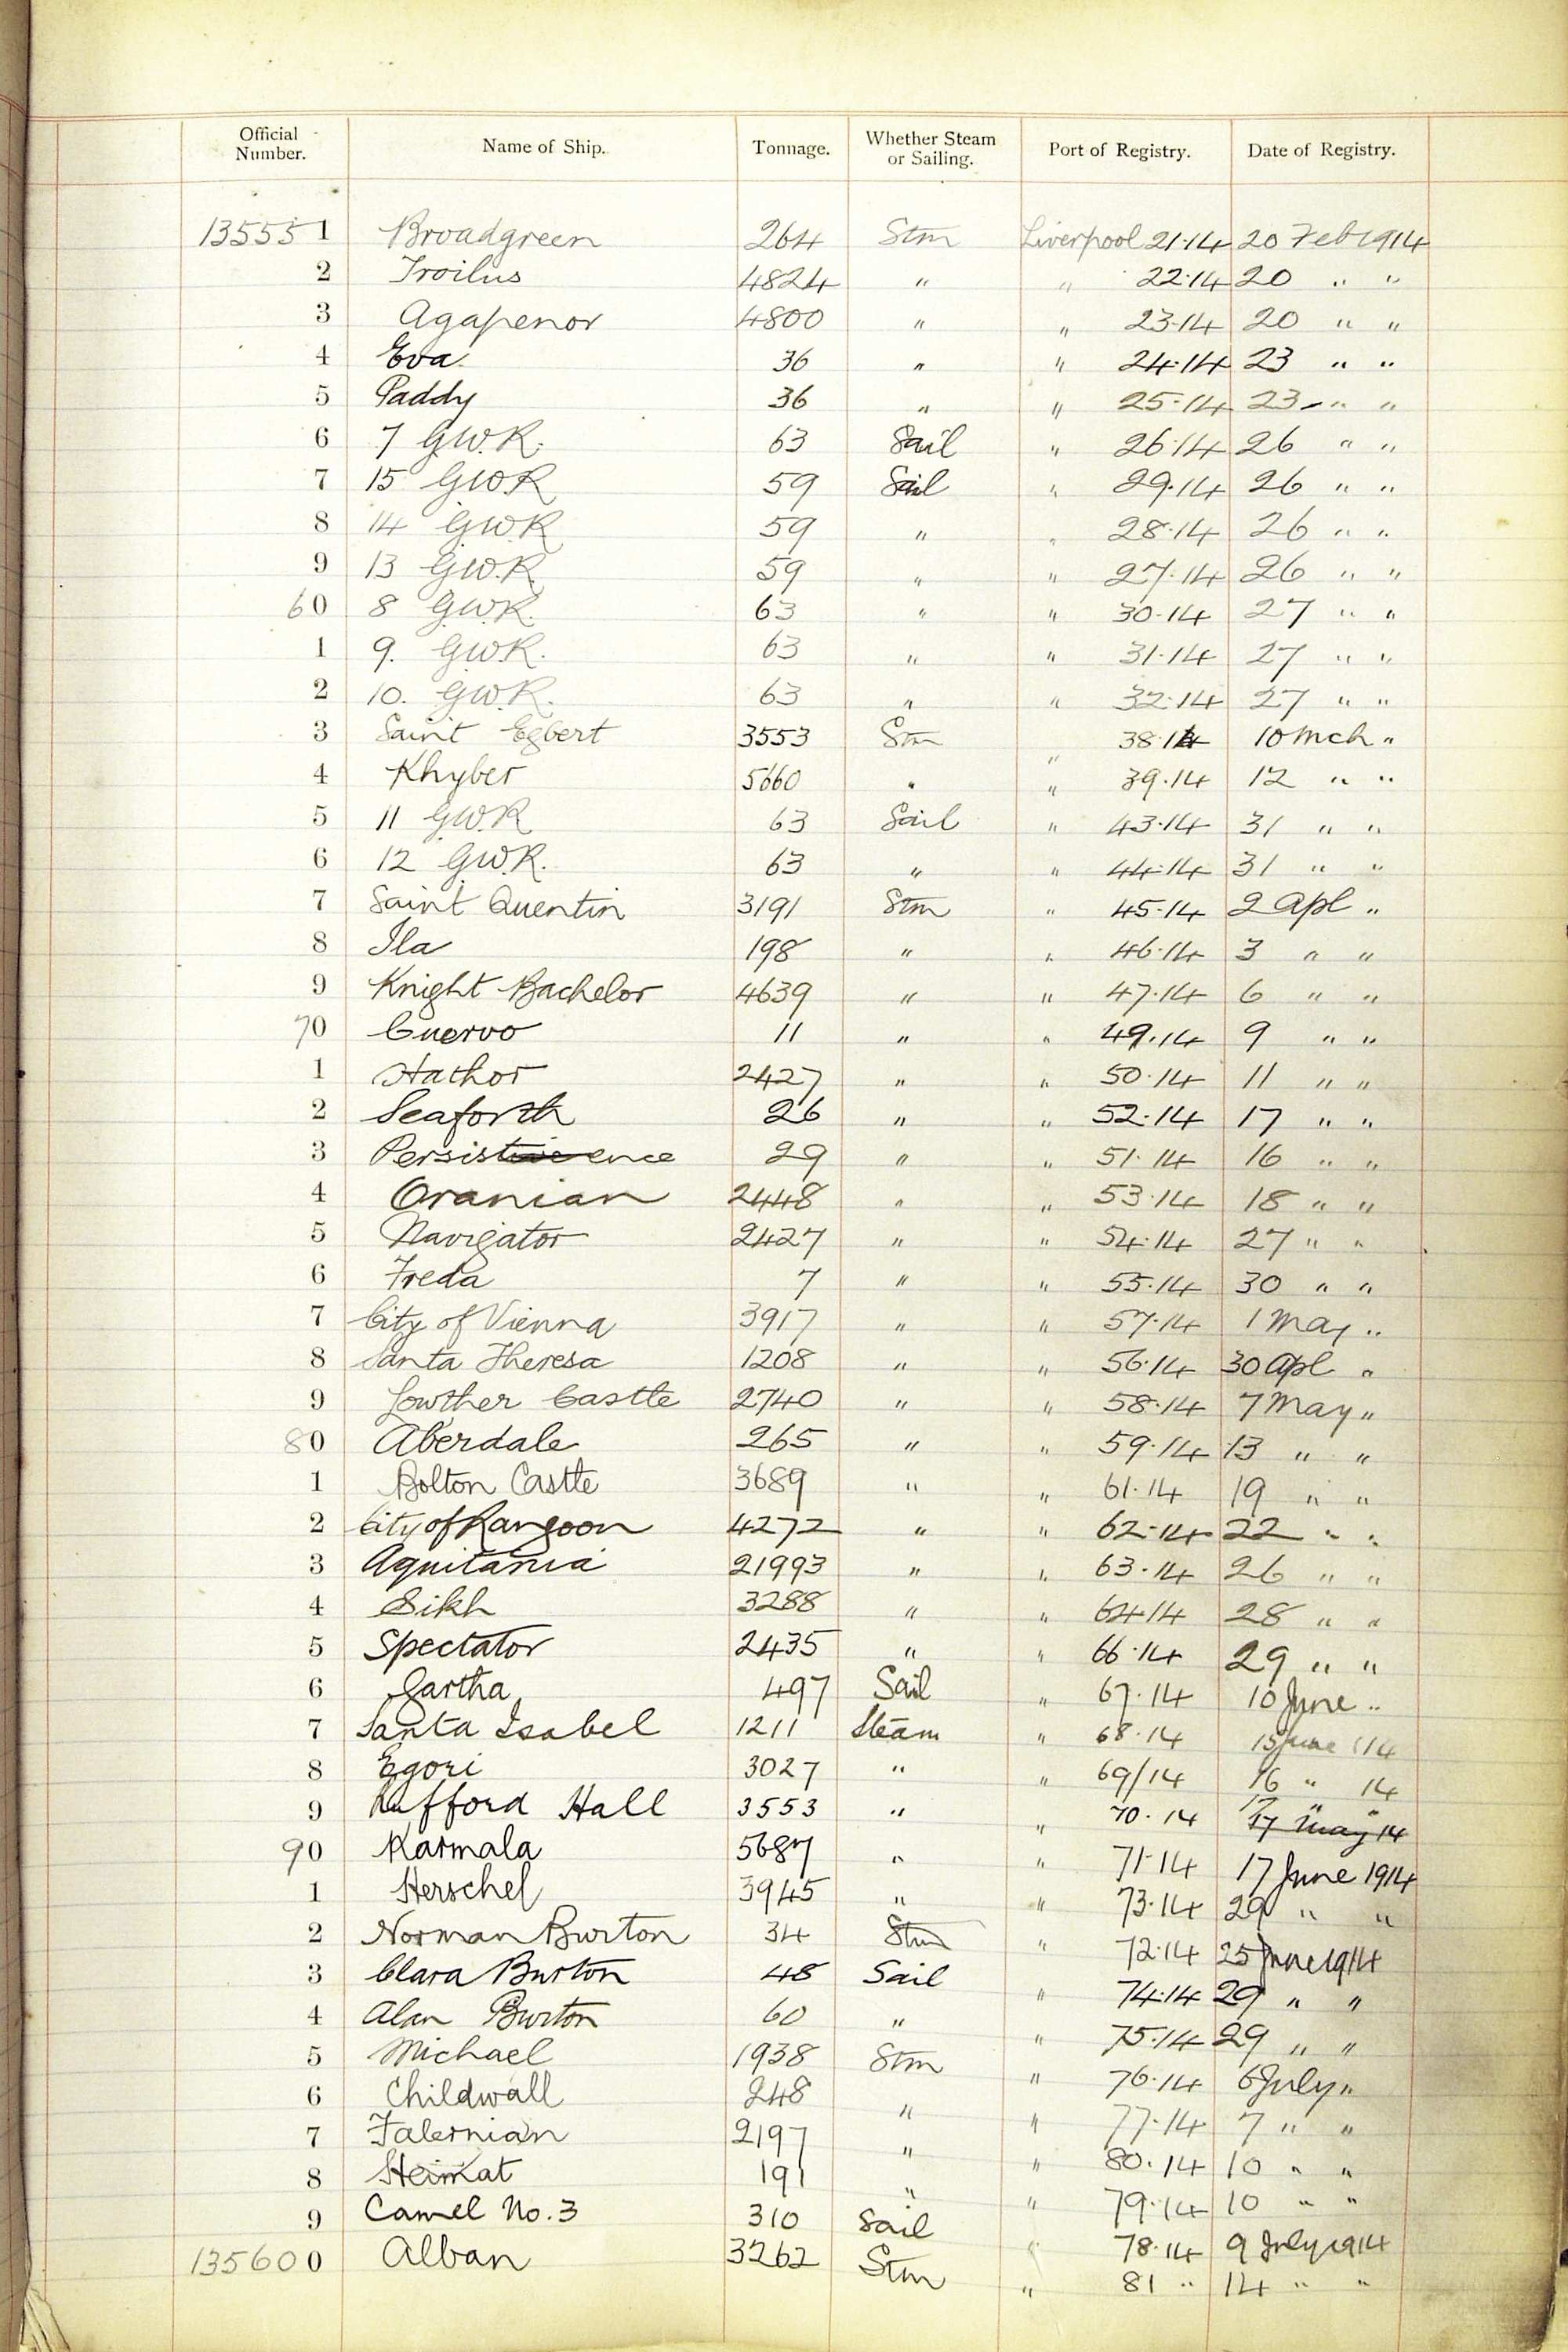 Official Number. Name of Ship. Tonnage. Whether Steam or Sailing. Port of Registry. Date of Registry.
135551 Broadgreen 264 Stm Liverpool 21.14 20 Feb 1914
2 Troilus 4824 " " 22.14 20 " "
3 Agapenor 4800 " " 23.14 20 " "
4 Eva 36 " " 24.14 23 " "
5 Paddy 36 " " 25.14 23 " "
6 7 G.W.R. 63 Sail " 26.14 26 " "
7 15 G.W.R 59 Sail " 29.14 26 " "
8 14 G.W.R 59 " " 28.14 26 " "
9 13 G.W.R 59 " " 27.14 26 " "
60 8 G.W.R. 63 " " 30.14 27 " "
1 9. G.W.R. 63 " " 31.14 27 " "
2 10. G.W.R. 63 " " 32.14 27 " "
3 Saint Egbert 3553 Stm " 38.14 10 Mch "
4 Khyber 5660 " " 39.14 12 " "
5 11 G.W.R 63 Sail " 43.14 31 " "
6 12 G.W.R. 63 " " 44.14 31 " "
7 Saint Quentin 3191 Stm " 45.14 2 Apl "
8 Ila 198 " " 46.14 3 " "
9 Knight Bachelor 4639 " " 47.14 6 " "
70 Cuervo 11 " " 49.14 9 " "
1 Hathor 2427 " " 50.14 11 " "
2 Seaforth 26 " " 52.14 17 " "
3 Persistence 29 " " 51.14 16 " "
4 Oranian 2448 " " 53.14 18 " "
5 Navigator 2427 " " 54.14 27 " "
6 Freda 7 " " 55.14 30 " "
7 City of Vienna 3917 " " 57.14 1 May "
8 Santa Theresa 1208 " " 56.14 30 Apl "
9 Lowther Castle 2740 " " 58.14 7 May "
80 Aberdale 265 " " 59.14 13 " "
1 Bolton Castle 3689 " " 61.14 19 " "
2 City of Rangoon 4272 " " 62.14 22 " "
3 Aquitania 21993 " " 63.14 26 " "
4 Sikh 3288 " " 64.14 28 " "
5 Spectator 2435 " " 66.14 29 " "
6 Gartha 497 Sail " 67.14 10 June "
7 Santa Isabel 1211 Steam " 68.14 15 June 14
8 Egori 3027 " " 69/14 16 " 14
9 Rufford Hall 3553 " " 70.14 17 " " 17 May 14
90 Karmala 5687 " " 71.14 17 June 1914
1 Herschel 3945 " " 73.14 29 " "
2 Norman Burton 34 Stm " 72.14 25 June 1914
3 Clara Burton 48 Sail " 74.14 29 " "
4 Alan Burton 60 " " 75.14 29 " "
5 Michael 1938 Stm " 76.14 6 July "
6 Childwall 248 " " 77.14 7 " "
7 Falernian 2197 " " 80.14 10 " "
8 Heimat 191 " " 79.14 10 " "
9 Camel No. 3 310 Sail " 78.14 9 July 1914
135600 Alban 3262 Stm " 81 " 14 " "